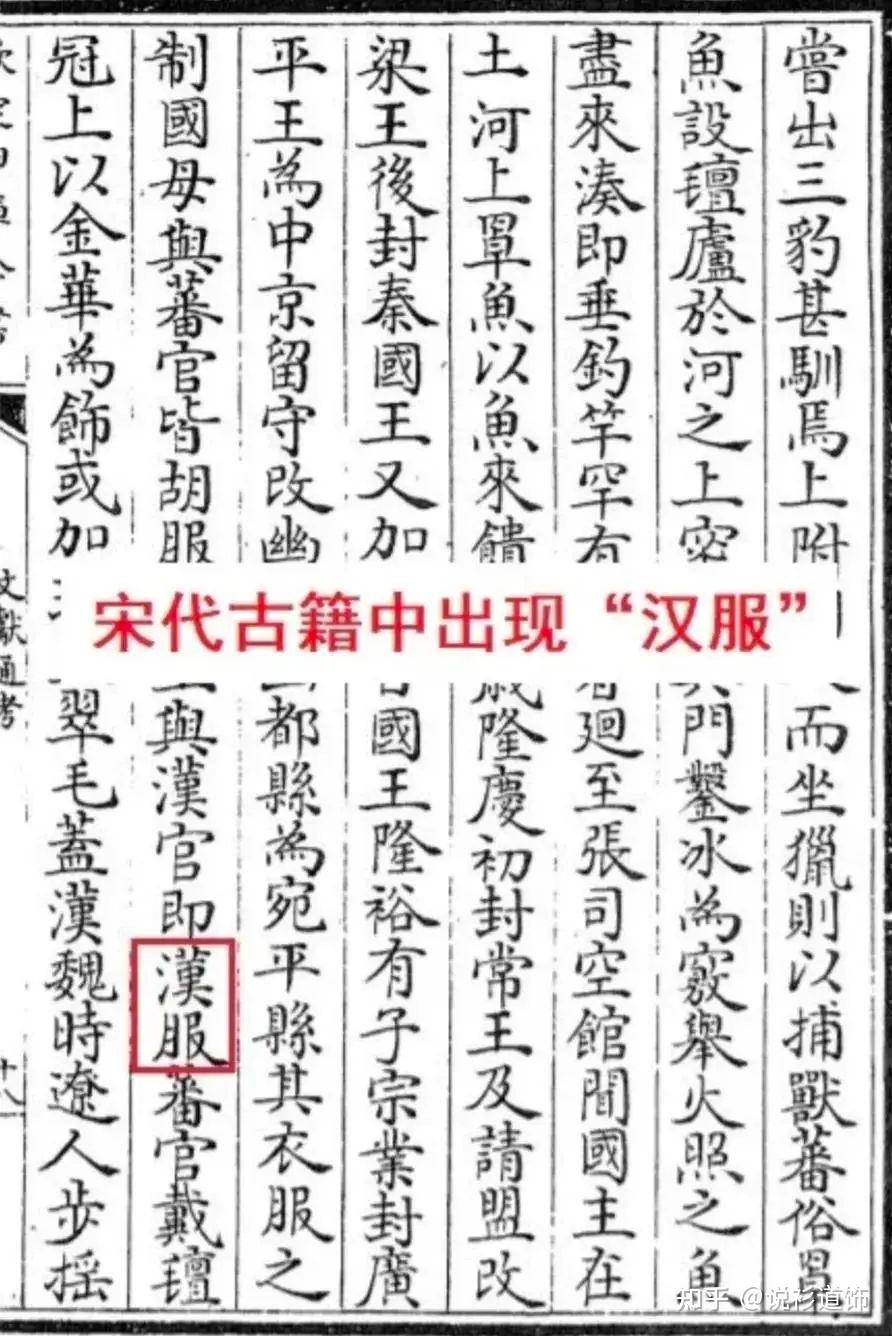 嘗出三豹甚馴焉上附
而坐獵則以捕獸蕃俗罩
魚設氊廬於河之上密
門鑿冰為竅舉火照之魚
盡來湊即垂釣竿罕有
廻至張司空館聞國主在
土河上罩魚以魚來饋
歲隆慶初封常王及請盟改
梁王後封秦國王又加
國王隆裕有子宗業封廣
平王為中京留守改幽
都縣為宛平縣其衣服之
制國母與蕃官皆胡服
與漢官即漢服蕃官戴氊
冠上以金華為飾或加
翠毛蓋漢魏時遼人步摇
文獻通考
宋代古籍中出现“汉服”
知乎 @说衫道饰